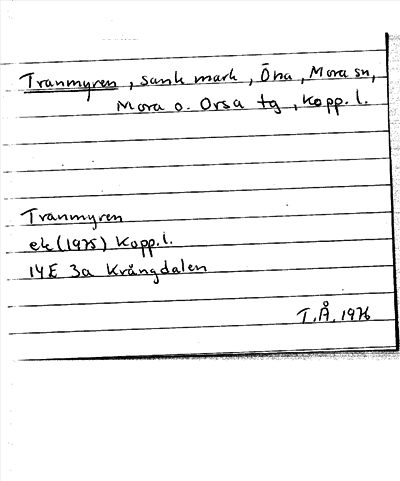 Tranmyren, sank mark, Öna, Mora sn,
Mora o. Orsa tg, Kopp. l.
Tranmyren
ek (1975) Kopp. l.
14E 3a Krångdalen
T.Å. 1976